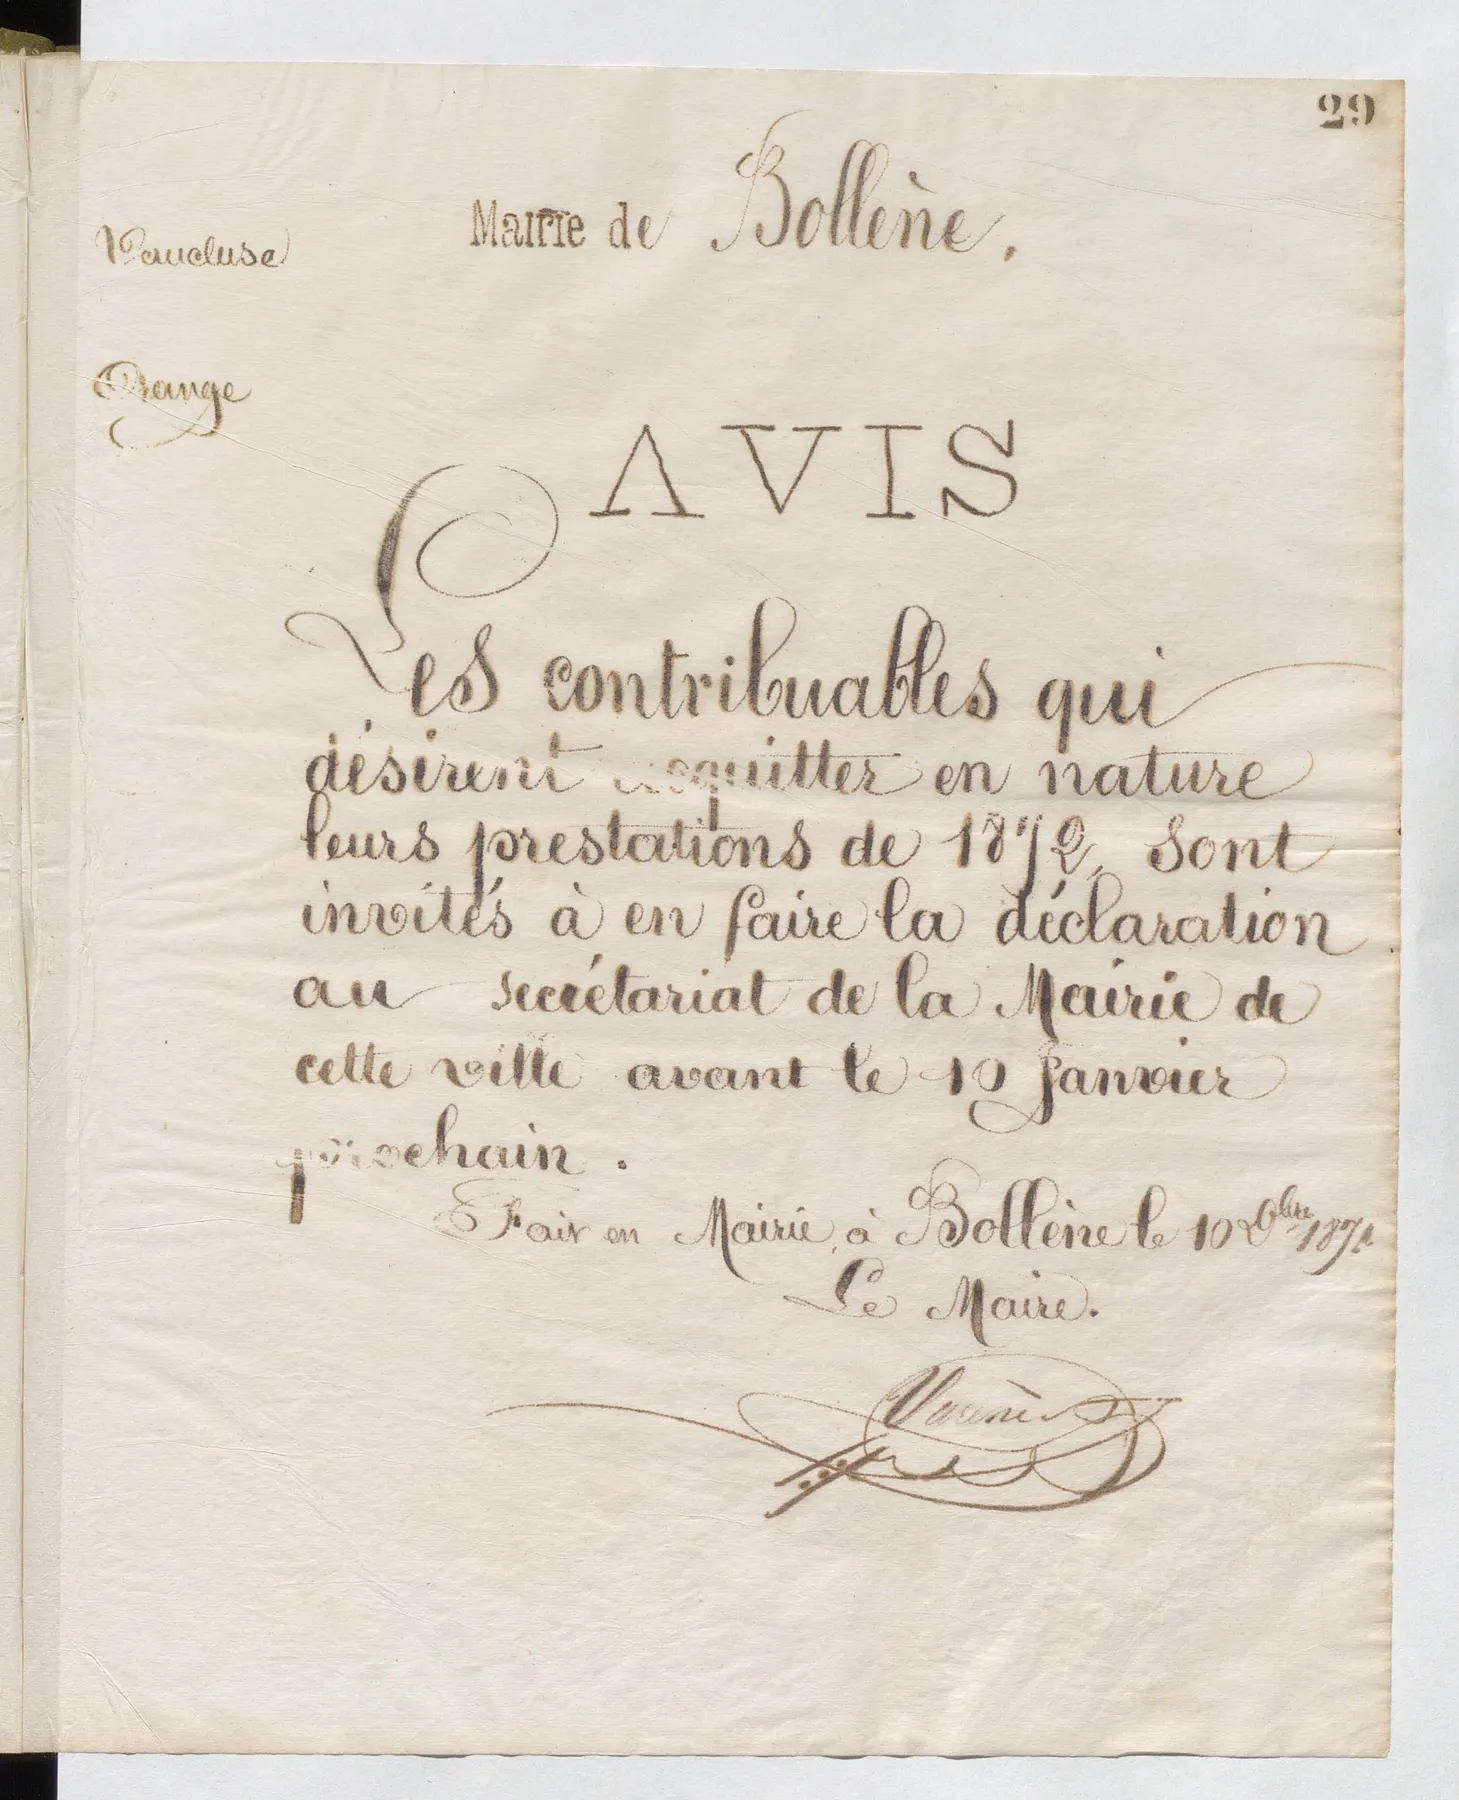 29
Mairie de Bollène.
Vaucluse
Orange
AVIS
Les contribuables qui
désirent acquitter en nature
leurs prestations de 1872, sont
invités à en faire la déclaration
au secrétariat de la Mairie de
cette ville avant le 10 Janvier
prochain.
Fait en Mairie, à Bollène le 10 Xbre 1871
Le Maire.